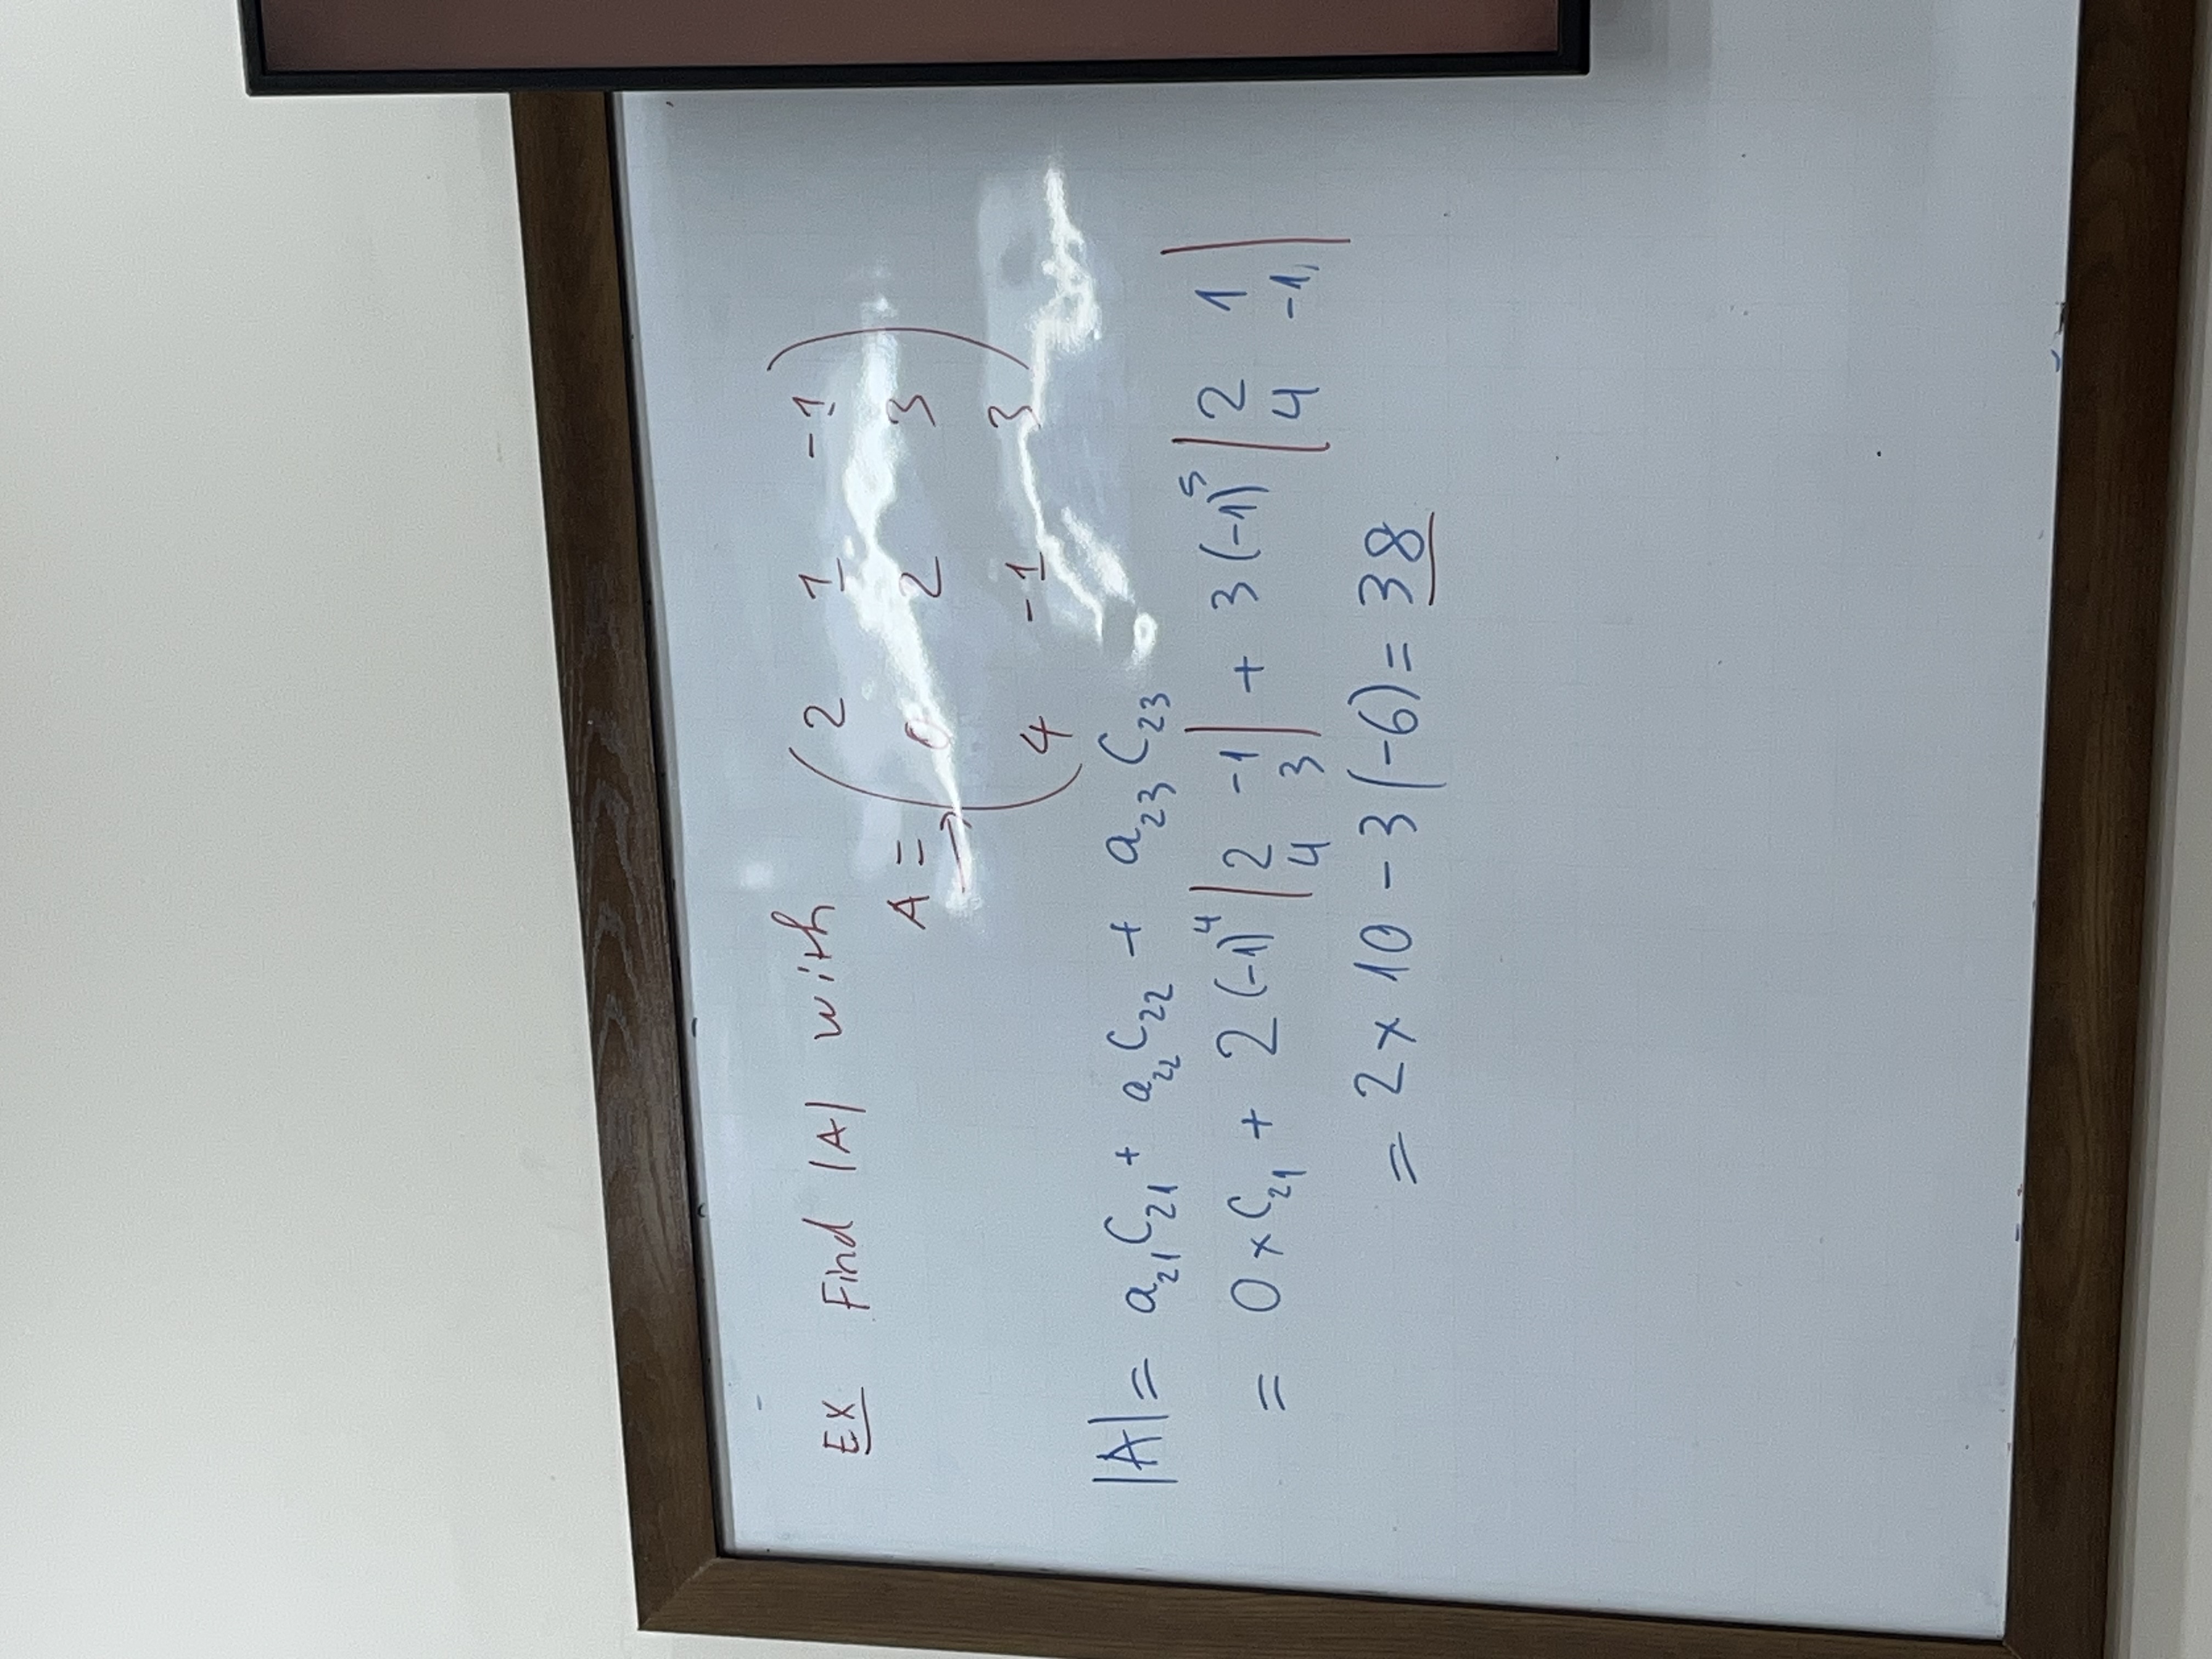 EX Find |A| with
A = ( 2 1 -1
0 2 3
4 -1 3 )
|A| = a₂₁C₂₁ + a₂₂C₂₂ + a₂₃C₂₃
= 0 × C₂₁ + 2 (-1)⁴ | 2 -1 | + 3 (-1)⁵ | 2 1 |
| 4 3 | | 4 -1 |
= 2 × 10 - 3 (-6) = 38